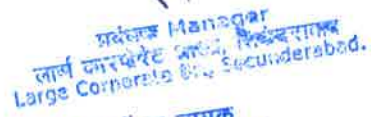 प्रबंधक Manager
लार्ज कारपोरेट शाखा, सिकंदराबाद
Large Corporate Br., Secunderabad.